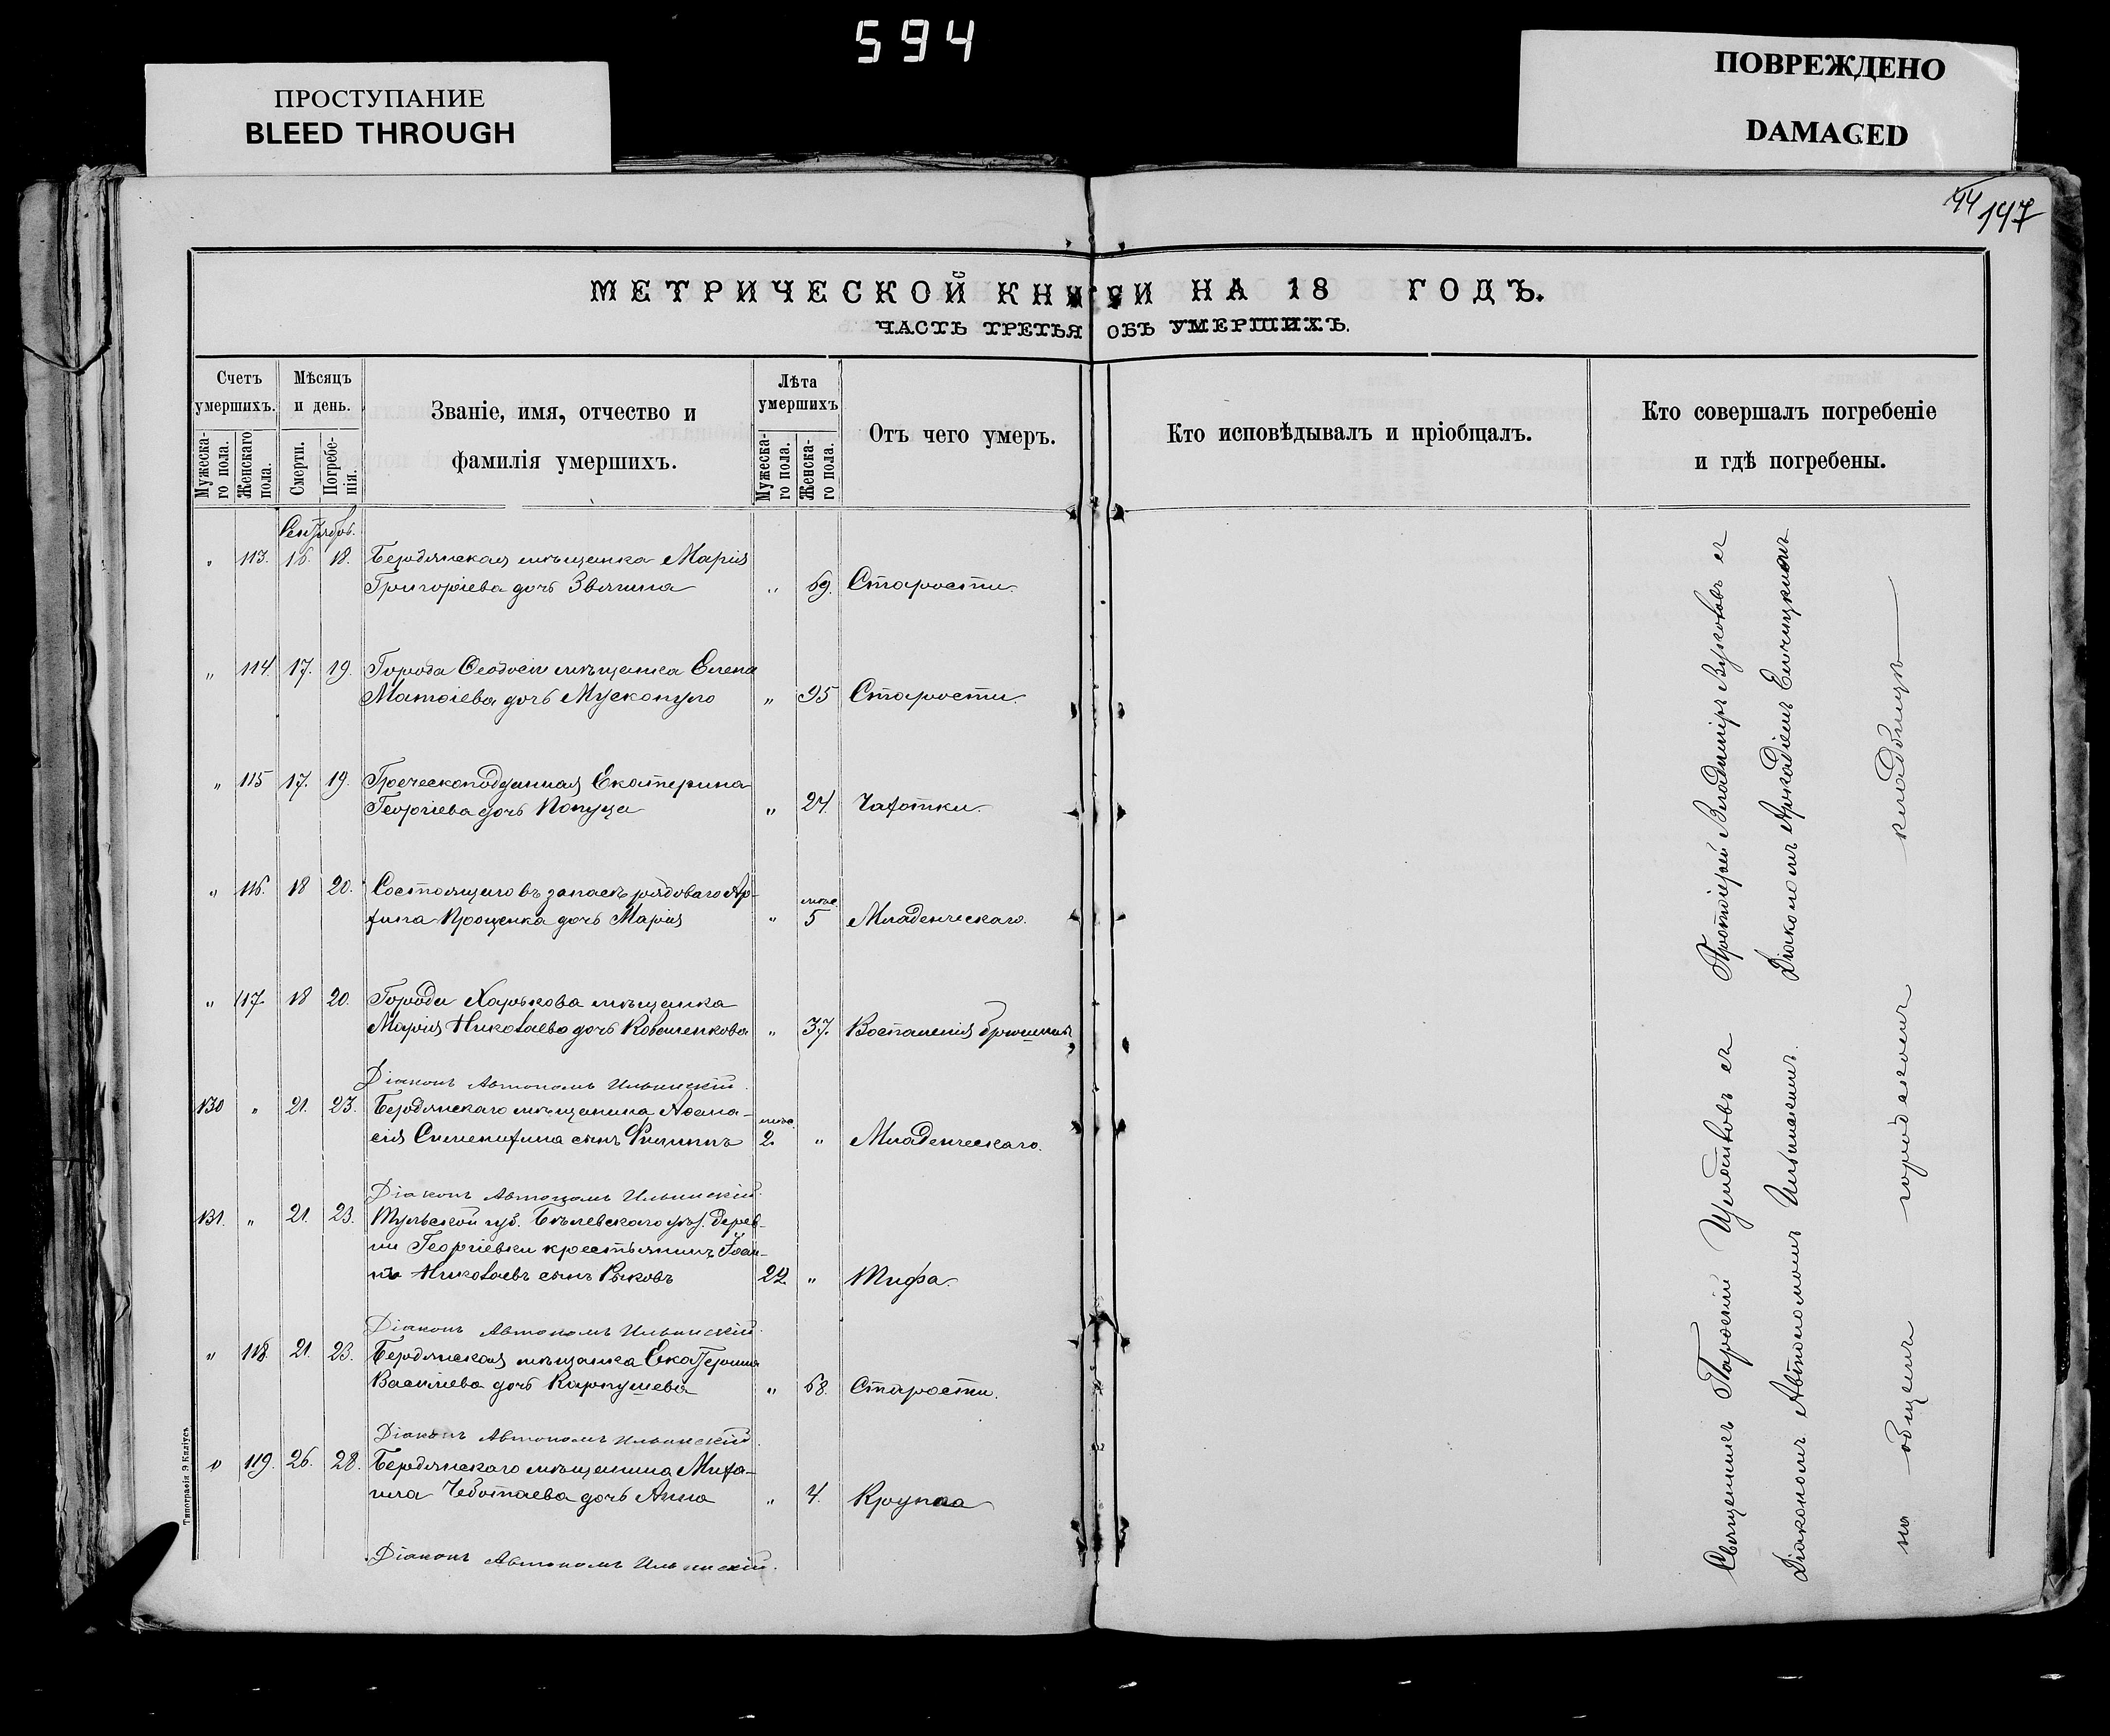 594
ПРОСТУПАНИЕ
BLEED THROUGH
ПОВРЕЖДЕНО
DAMAGED
44 147
МЕТРИЧЕСКОЙ КНИГИ НА 18 ГОДЪ.
ЧАСТЬ ТРЕТЬЯ ОБЪ УМЕРШИХЪ.
Счетъ умершихъ.
Мужеска-го пола.
Женскаго пола.
Мѣсяцъ и день.
Смерти.
Погребе-нія.
Званіе, имя, отчество и
фамилія умершихъ.
Лѣта умершихъ
Мужеска-го пола.
Женска-го пола.
Отъ чего умеръ.
Кто исповѣдывалъ и пріобщалъ.
Кто совершалъ погребеніе
и гдѣ погребены.
Сентябрь.
„ 113. 16. 18. Бердянская мѣщанка Марія
Григоріева дочь Звягина „ 69. Старости.
„ 114. 17. 19. Города Ѳеодосіи мѣщанка Елена
Матѳіева дочь Мускопуло „ 95 Старости.
„ 115 17. 19. Греческоподданная Екатерина
Георгіева дочь Попуца „ 24. Чахотки.
„ 116. 18 20. Состоящаго въ запасѣ рядоваго Ар-
хипа Проценка дочь Марія „ мѣс. 5 Младенческаго.
„ 117. 18 20. Города Харькова мѣщанка
Марія Николаева дочь Коваленкова „ 37. Воспаленія брюшины
Діаконъ Автономъ Ильинскій.
130 „ 21. 23. Бердянскаго мѣщанина Аѳана-
сія Синепихина сынъ Филиппъ мѣс. 2. „ Младенческаго.
Діаконъ Автономъ Ильинскій.
131. „ 21. 23. Тульской губ. Бѣлевскаго уѣз. дерев-
ни Георгіевки крестьянинъ Іоан-
нъ Николаевъ сынъ Рыковъ 22 „ Тифа.
Діаконъ Автономъ Ильинскій.
„ 118. 21. 23. Бердянская мѣщанка Екатерина
Василіева дочь Карпушева „ 68. Старости.
Діаконъ Автономъ Ильинскій.
„ 119. 26. 28. Бердянскаго мѣщанина Миха-
ила Чеботаева дочь Анна „ 4. Крупа
Діаконъ Автономъ Ильинскій.
Священникъ Парѳеній съ Протоіерей Владиміръ съ
Діакономъ Автономомъ Ильинскимъ. Діакономъ Аркадіемъ
на общемъ городскомъ кладбищѣ
Типографія Э Киліусъ